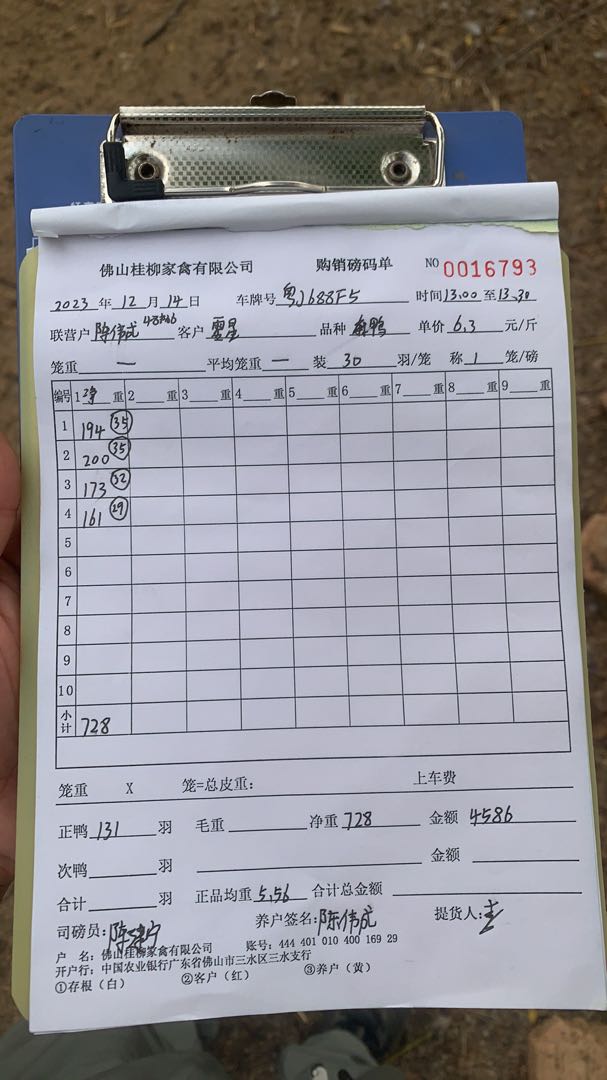 佛山桂柳家禽有限公司 购销磅码单 NO 0016793
2023 年 12 月 14 日 车牌号 粤J688F5 时间 13.00 至 13.30
联营户 陈伟成 客户 品种 鸭 单价 6.3 元/斤
笼重 一 平均笼重 一 装 30 羽/笼 称 1 笼/磅
编号 1 净 重 2 重 3 重 4 重 5 重 6 重 7 重 8 重 9 重
1 194 35
2 200 35
3 173 32
4 161 29
5
6
7
8
9
10
小计 728
笼重 X 笼=总皮重: 上车费
正鸭 131 羽 毛重 净重 728 金额 4586
次鸭 羽 金额
合计 羽 正品均重 5.56 合计总金额
司磅员: 养户签名: 陈伟成 提货人:
户 名: 佛山桂柳家禽有限公司 账号: 444 401 010 400 169 29
开户行: 中国农业银行广东省佛山市三水区三水支行
①存根（白） ②客户（红） ③养户（黄）